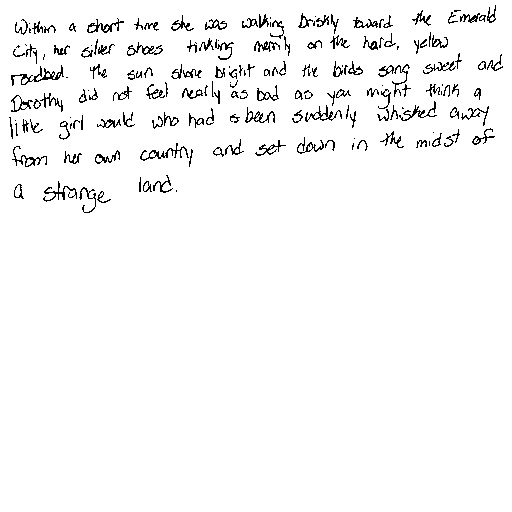 Within a short time she was walking briskly toward the Emerald
City, her silver shoes tinkling merrily on the hard, yellow
roadbed. The sun shone bright and the birds sang sweet and
Dorothy did not feel nearly as bad as you might think a
little girl would who had s been suddenly whisked away
from her own country and set down in the midst of
a strange land.